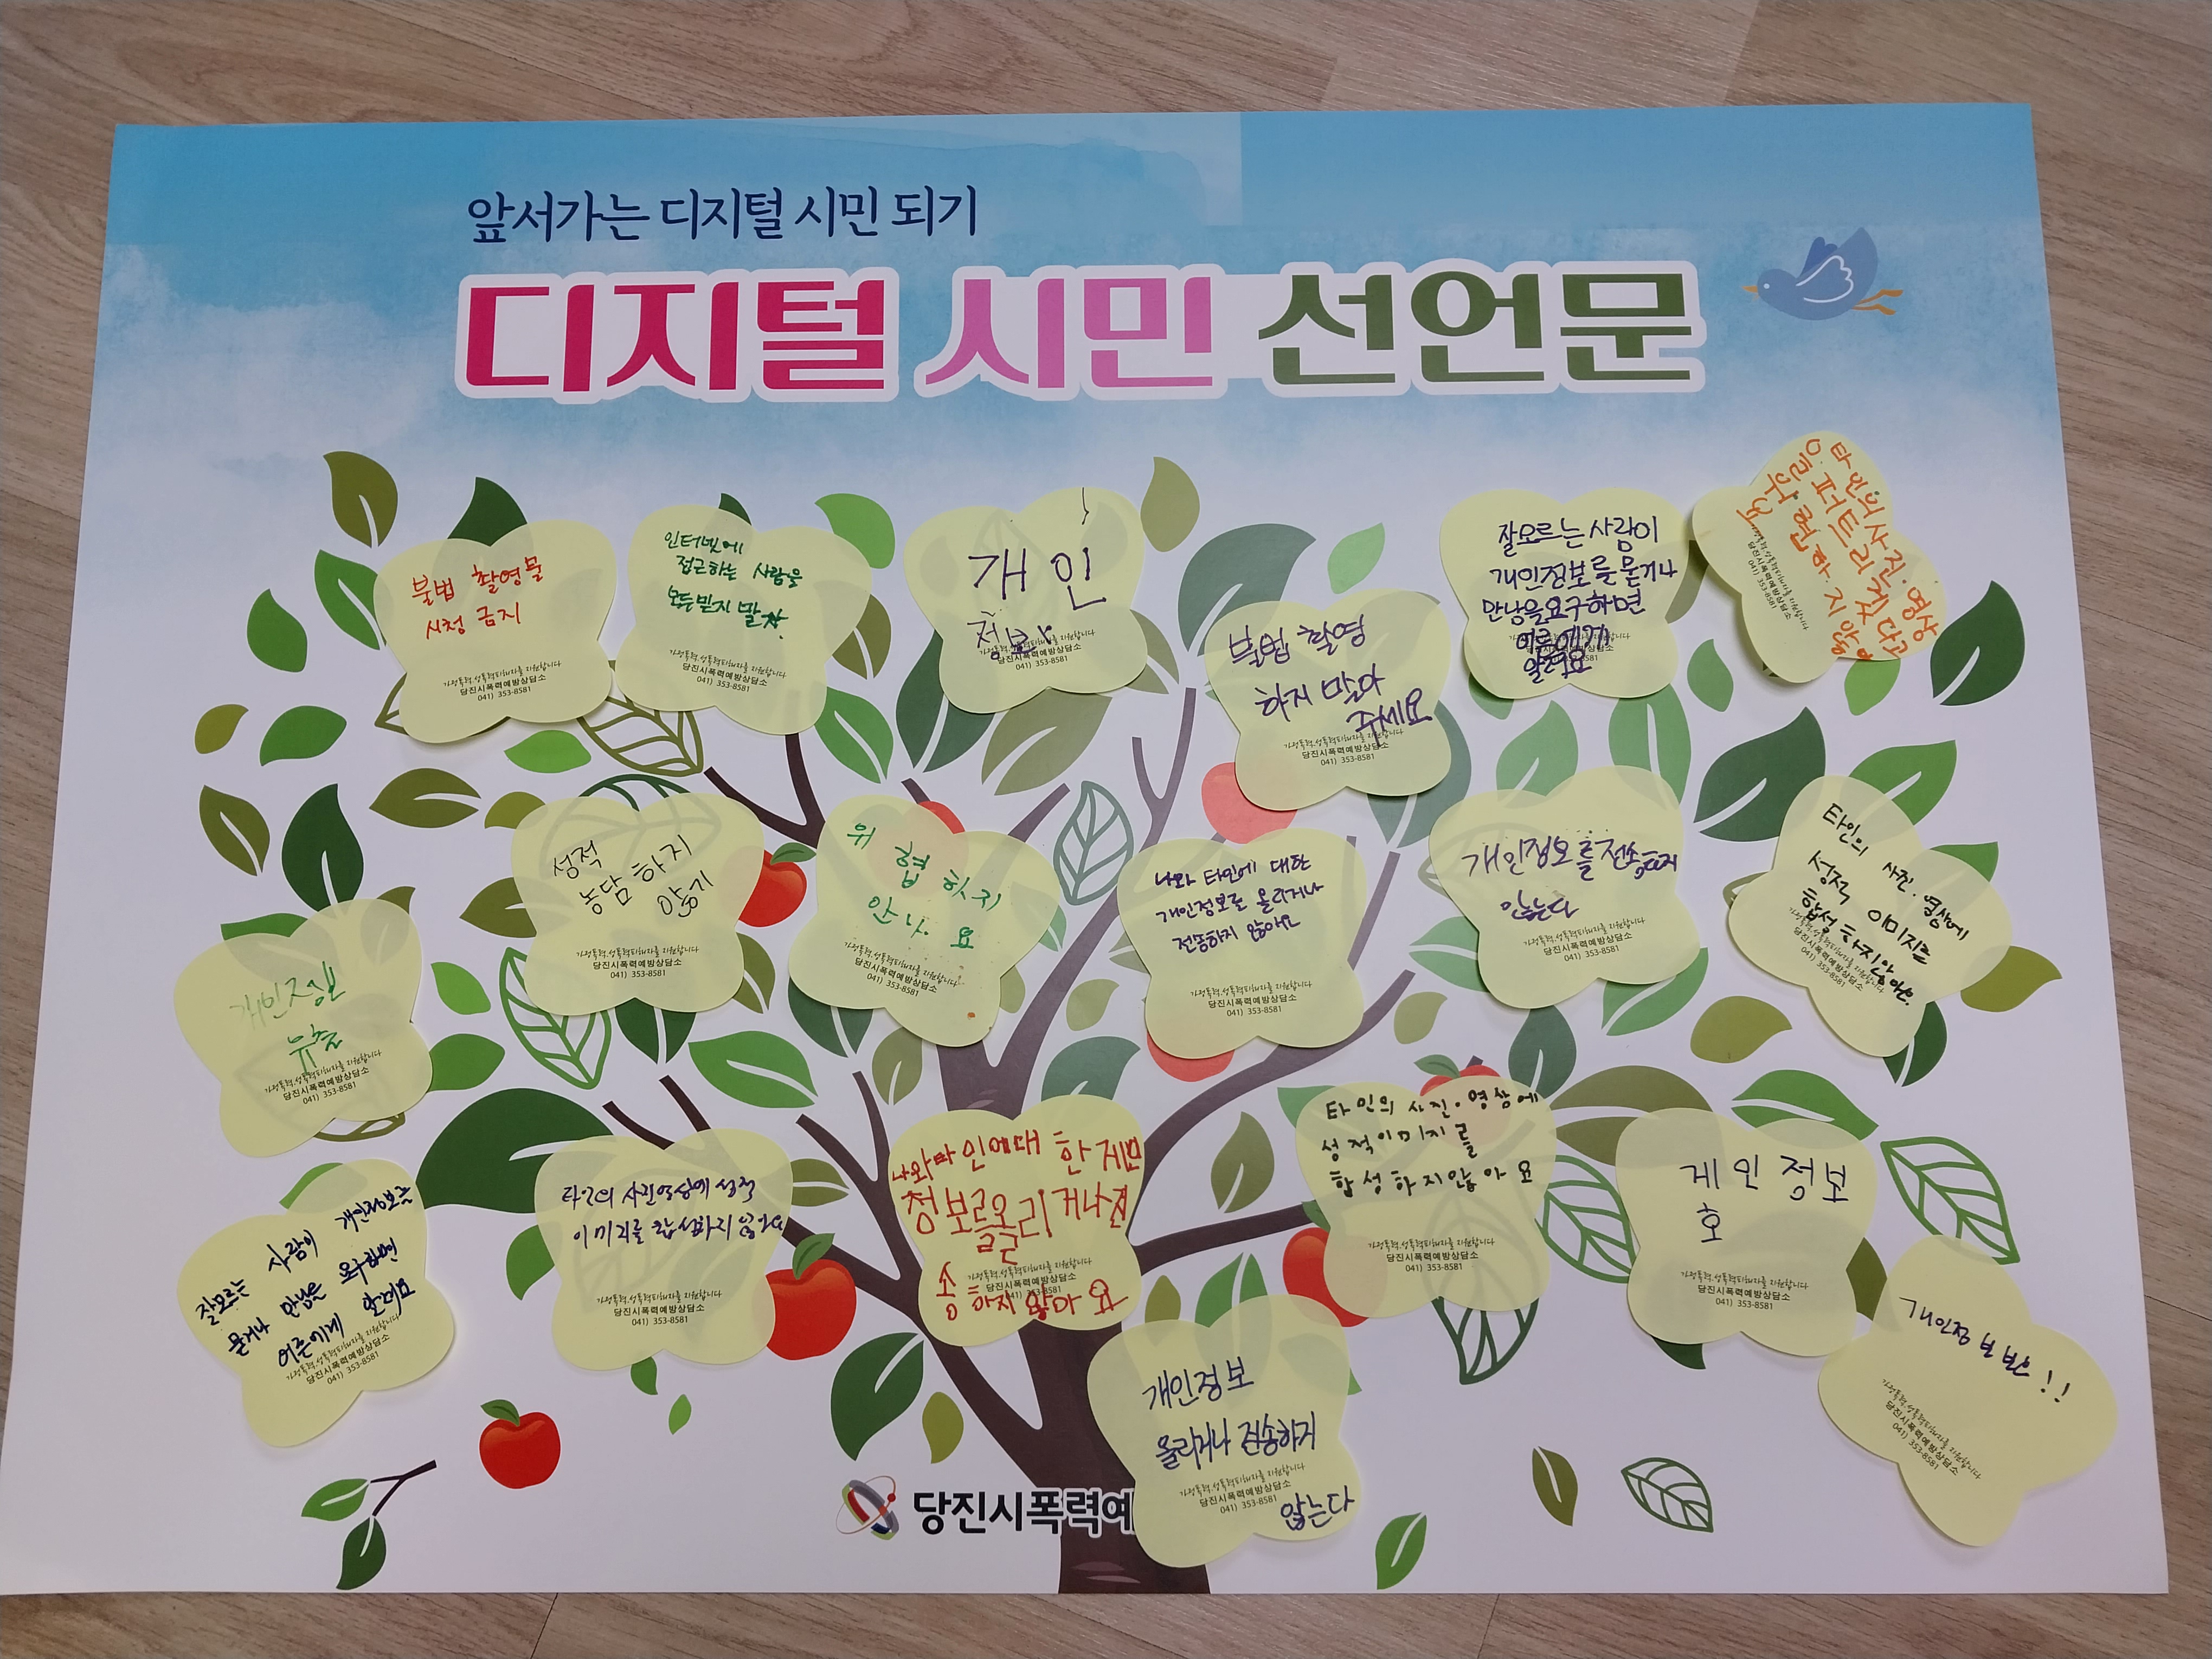 앞서가는 디지털 시민 되기
디지털 시민 선언문
불법 촬영물
시청 금지
가정폭력.성폭력피해자를 지원합니다
당진시폭력예방상담소
041) 353-8581
인터넷에
접근하는 사람을
모두믿지 말자.
가정폭력.성폭력피해자를 지원합니다
당진시폭력예방상담소
041) 353-8581
개인
정보
가정폭력.성폭력피해자를 지원합니다
당진시폭력예방상담소
041) 353-8581
불법 촬영
하지 말아
주세요
가정폭력.성폭력피해자를 지원합니다
당진시폭력예방상담소
041) 353-8581
잘모르는 사람이
개인정보를 묻거나
만남을요구하면
알려요
타인의 사진.영상
퍼트리겠다고
하지 않아
요
가정폭력.성폭력피해자를 지원합니다
당진시폭력예방상담소
041) 353-8581
개인정보
유출
가정폭력.성폭력피해자를 지원합니다
당진시폭력예방상담소
041) 353-8581
성적
농담 하지
않기
가정폭력.성폭력피해자를 지원합니다
당진시폭력예방상담소
041) 353-8581
위 협 하지
안나. 요
가정폭력.성폭력피해자를 지원합니다
당진시폭력예방상담소
041) 353-8581
나와 타인에 대한
개인정보를 올리거나
전송하지 않아요
가정폭력.성폭력피해자를 지원합니다
당진시폭력예방상담소
041) 353-8581
개인정보를전송하지
않는다
가정폭력.성폭력피해자를 지원합니다
당진시폭력예방상담소
041) 353-8581
타인의 사진.영상에
성적 이미지를
합성하지않아요.
가정폭력.성폭력피해자를 지원합니다
당진시폭력예방상담소
041) 353-8581
잘모르는 사람이 개인정보를
묻거나 만남을 요구하면
어른에게 알려요
가정폭력.성폭력피해자를 지원합니다
당진시폭력예방상담소
041) 353-8581
타인의 사진영상에 성적
이미지를 합성하지 않아요
가정폭력.성폭력피해자를 지원합니다
당진시폭력예방상담소
041) 353-8581
나와타인에대 한게인
정보를올리거나전
송 하지 않아 요
가정폭력.성폭력피해자를 지원합니다
당진시폭력예방상담소
041) 353-8581
타인의 사진.영상에
성적이미지를
합성하지않아요
가정폭력.성폭력피해자를 지원합니다
당진시폭력예방상담소
041) 353-8581
게인정보
호
가정폭력.성폭력피해자를 지원합니다
당진시폭력예방상담소
041) 353-8581
개인정보
올리거나 전송하지
않는다
가정폭력.성폭력피해자를 지원합니다
당진시폭력예방상담소
041) 353-8581
개인정보 !!
가정폭력.성폭력피해자를 지원합니다
당진시폭력예방상담소
041) 353-8581
당진시폭력예